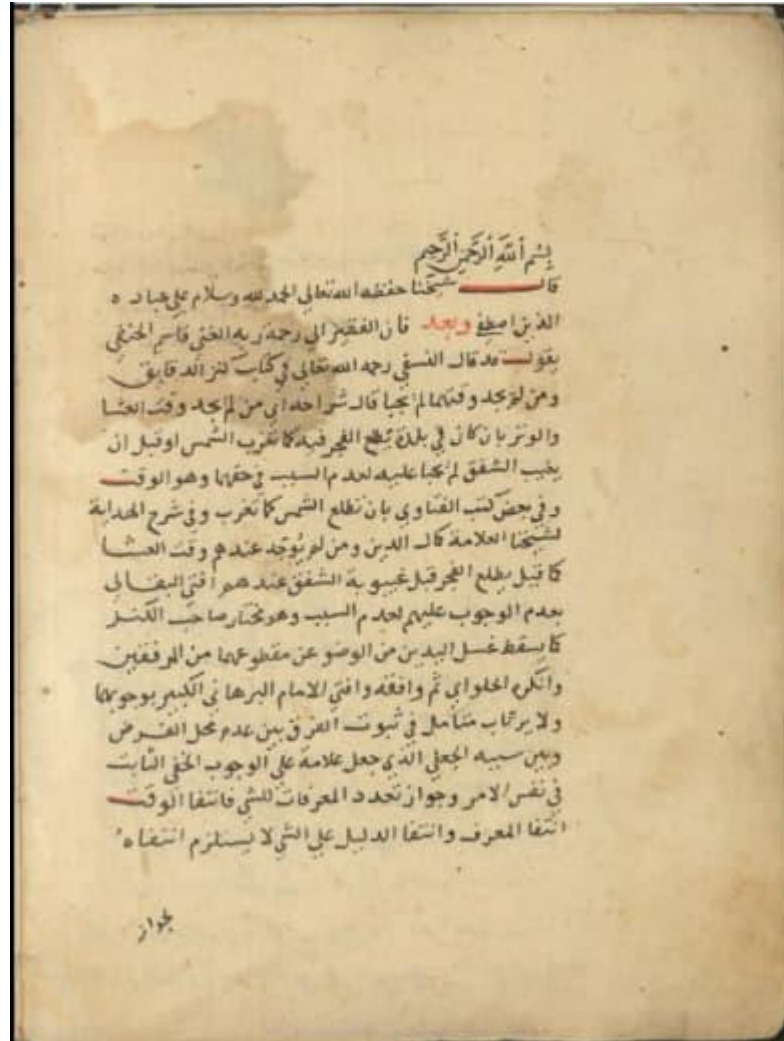 بِسْمِ اَللَّهِ اَلرَّحْمَنِ اَلرَّحِيمِ
قال شيخنا حفظه الله تعالى الحمد لله وسلام على عباده
الذين اصطفى وبعد فان الفقير الى رحمة ربه الغني قاسم الحنفي
يقول قد قال النسفي رحمه الله تعالى في كتاب كنز الدقايق
ومن لم يجد وقتهما لم يجبا قال شراحه اي من لم يجد وقت العشا
والوتر بان كان في بلدة يطلع الفجر فيه كما تغرب الشمس او قبل ان
يغيب الشفق لم يجبا عليه لعدم السبب في حقهما وهو الوقت
وفي بعض كتب الفتاوى بان تطلع الشمس كما تغرب وفي شرح الهداية
لشيخنا العلامة كمال الدين ومن لم يوجد عندهم وقت العشا
كما قيل يطلع الفجر قبل غيبوبة الشفق عندهم افتى البقالي
بعدم الوجوب عليهم لعدم السبب وهو مختار صاحب الكنز
كما يسقط غسل اليدين من الوضو عن مقطوعهما من المرفقين
وانكره الحلواي ثم وافقه وافتى الامام البرهاني الكبير بوجوبهما
ولا يرتاب متامل في ثبوت الفرق بين عدم محل الفرض
وبين سببه الجعلي الذي جعل علامة على الوجوب الخفي الثابت
في نفس الامر وجواز تعدد المعرفات للشي فانتفا الوقت
انتفا المعرف وانتفا الدليل على الشي لا يستلزم انتفاه
لجواز